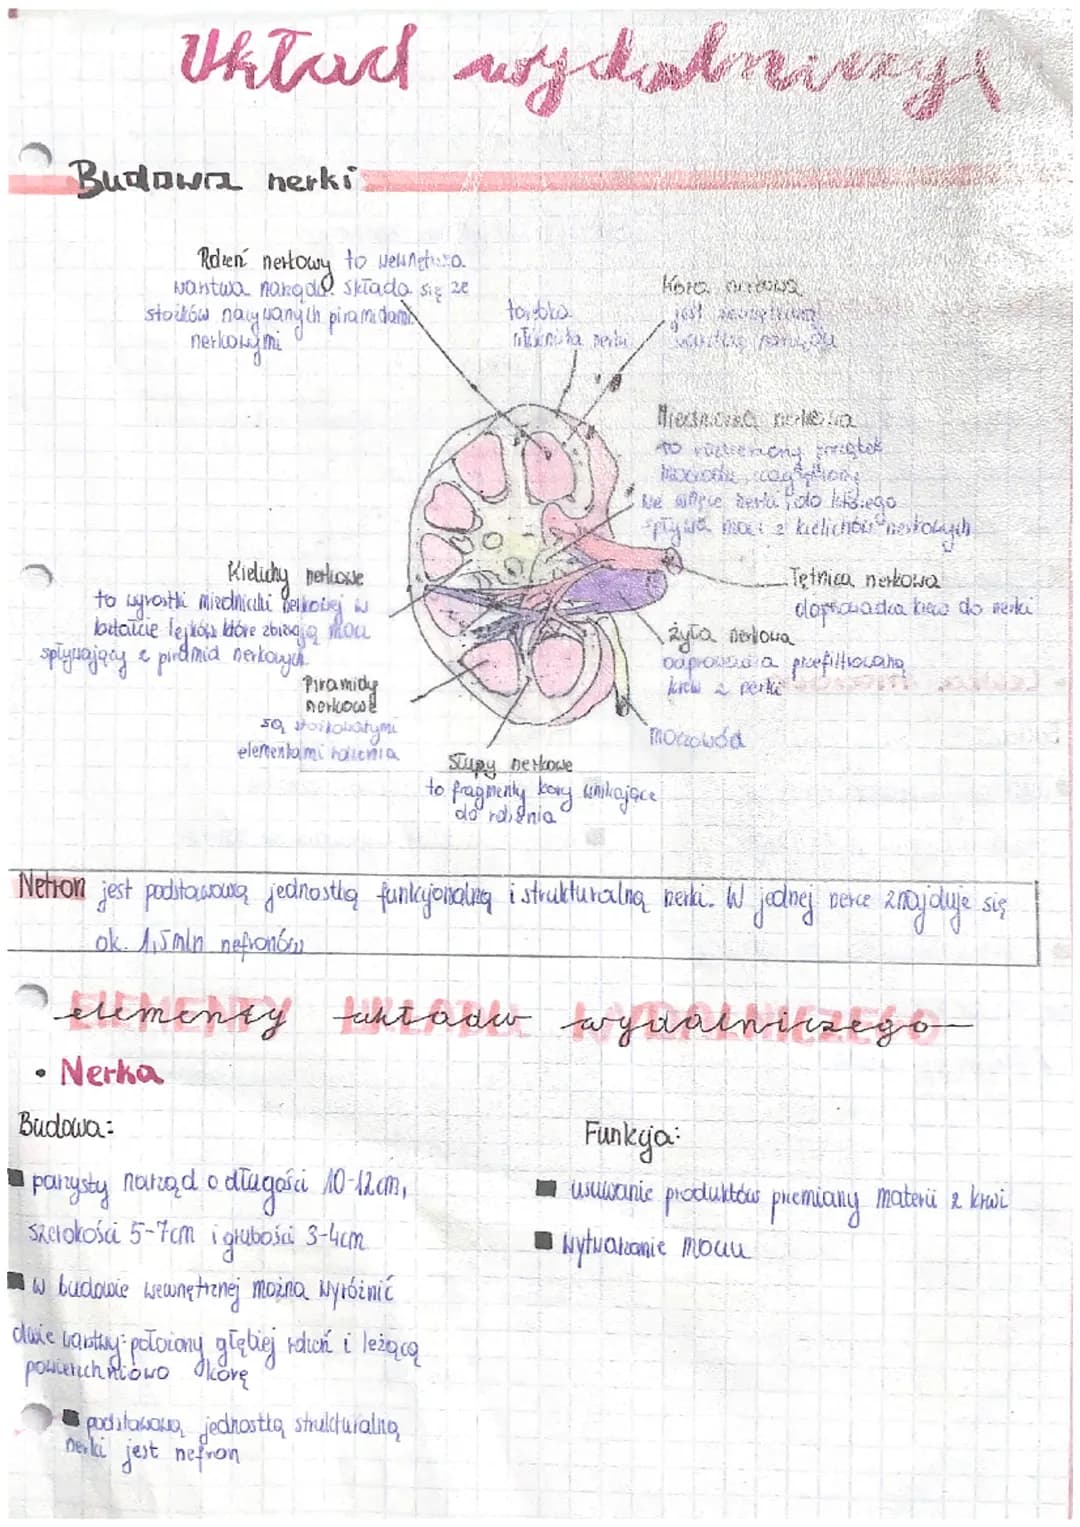 Układ wydalniczy
Budowa nerki
Rdzeń nerkowy to wewnętrzna
warstwa narządu. składa się ze
stożków nazywanych piramidami
nerkowymi
torebka
włóknista nerki
Kora nerkowa
jest zewnętrzną
warstwą narządu
Miedniczka nerkowa
to rozszerzony początek
moczowodu
we wnęce nerki, do którego
spływa mocz z kielichów nerkowych
Tętnica nerkowa
doprowadza krew do nerki
żyła nerkowa
odprowadza przefiltrowaną
krew z nerki
moczowód
Kielichy nerkowe
to wyrostki miedniczki nerkowej w
kształcie lejków które zbierają mocz
spływający z piramid nerkowych
Piramidy
nerkowe
są stożkowatymi
elementami rdzenia
Słupy nerkowe
to fragmenty kory wnikające
do rdzenia
Nefron jest podstawową jednostką funkcjonalną i strukturalną nerki. W jednej nerce znajduje się
ok. 1,5mln nefronów
elementy układu wydalniczego
• Nerka
Budowa:
parzysty narząd o długości 10-12cm,
szerokości 5-7cm i grubości 3-4cm
w budowie wewnętrznej można wyróżnić
dwie warstwy: położony głębiej rdzeń i leżącą
powierzchniowo korę
podstawową jednostką strukturalną
nerki jest nefron
Funkcja:
usuwanie produktów przemiany materii z krwi
wytwarzanie moczu